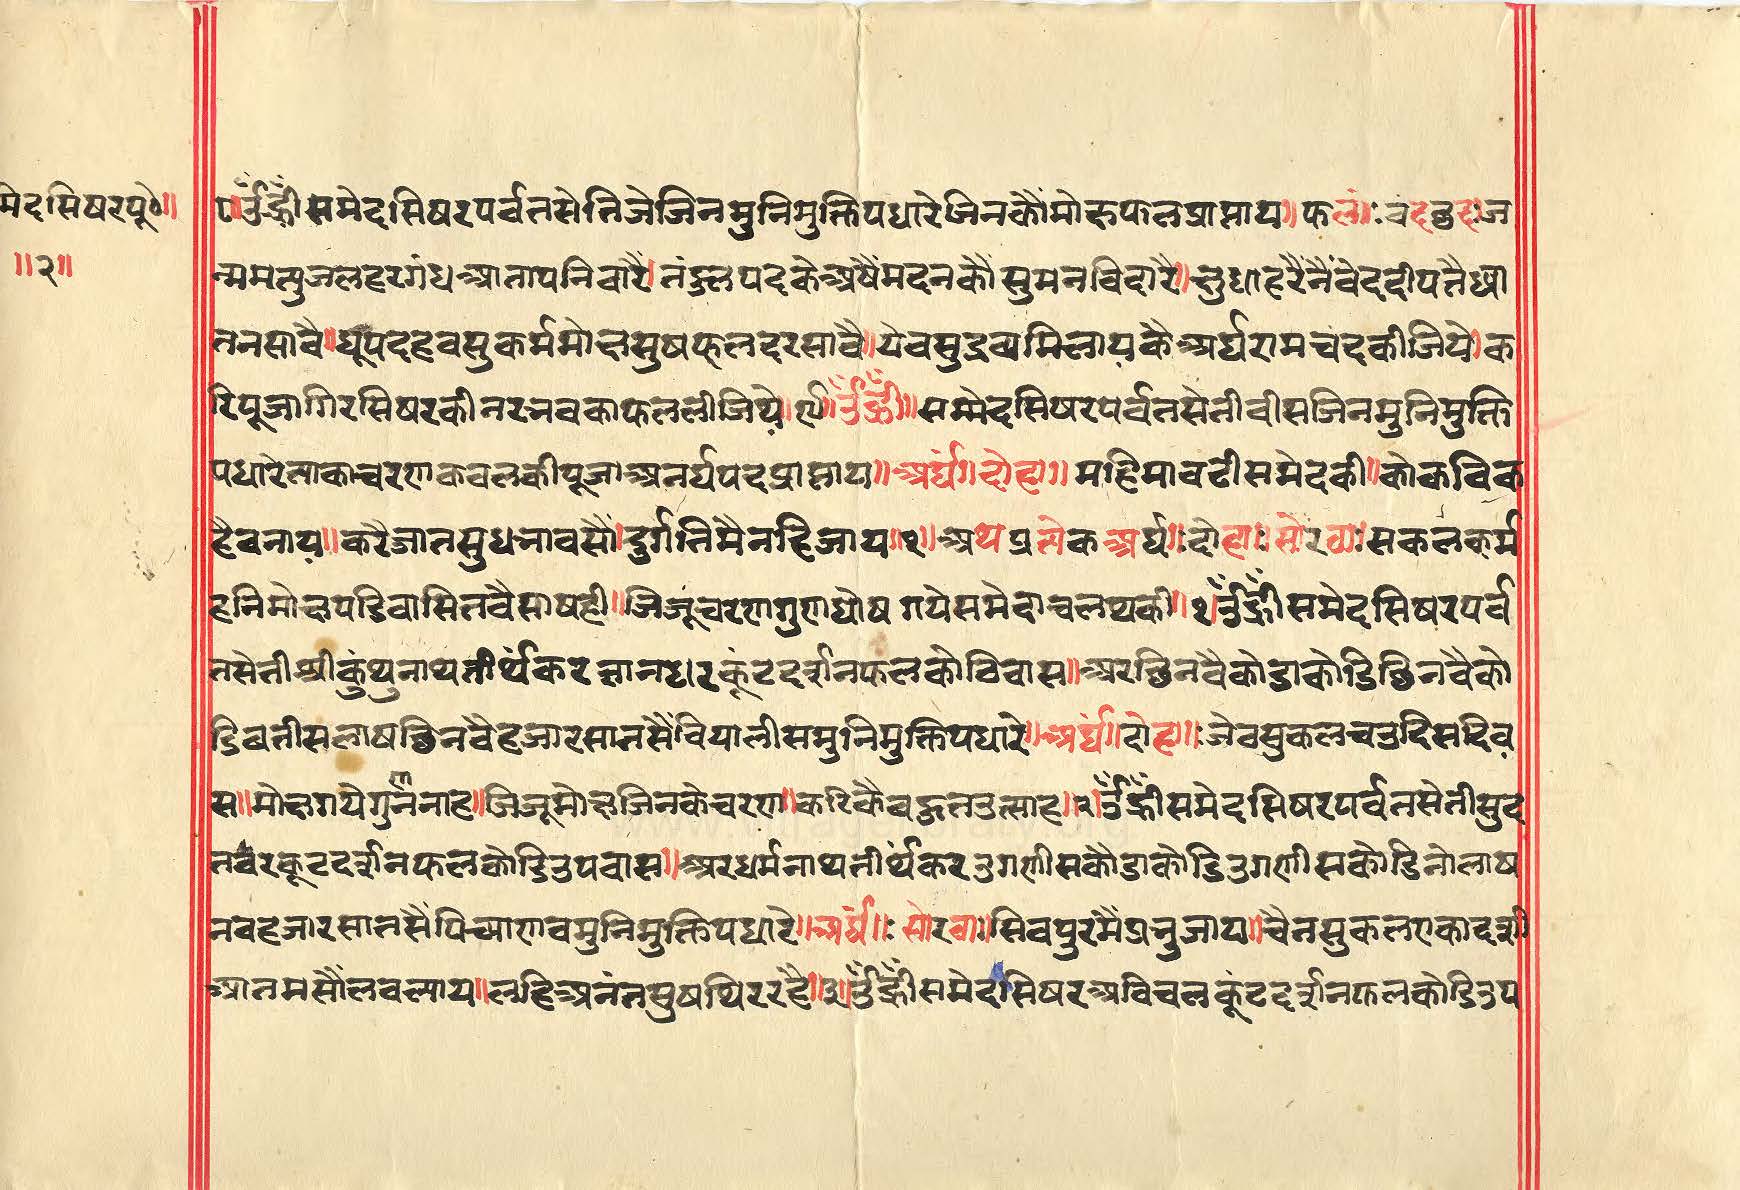 मेदसिषरपू०॥
॥२॥
८॥ॐह्रीँ समेदसिषरपर्वतसेतिजेजिनमुनिमुक्तिपधारेजिनकौंमोक्षफलप्राप्ताय॥फलं॥ः चंदछहः॥ज
न्ममत्युजलहरगंधआतापनिवारै॥तंडुलपदकेअषैमदनकौंसुमनविदारै॥छुधाहरैनैवेददीपतैध्वां
तनसावै॥धूपदहवसुकर्ममोक्षसुषफलदरसावै॥येवसुद्रव्यमिलायकैअर्घरामचंदकीजिये॥क
रिपूजागिरसिषरकीनरभवकाफललीजिये॥९॥ॐह्रीँ॥सम्मेदसिषरपर्वतसेतीवीसजिनमुनिमुक्ति
पधारेताकाचरणकवलकीपूजाअनर्घपदप्राप्ताय॥अर्घं॥दोहा॥महिमावढीसमेदकी॥कोकविक
हैवनाय॥करैजातसुधभावसौं॥दुर्गतिमैनहिजाय॥१॥अथप्रत्येकअर्घ॥ःदोहा॥ःसोरठा॥सकलकर्म
हनिमोक्षपडिवासितवैसाषही॥जिजूंचरणगुणधोषगयेसमेदाचलथकी॥१॥ॐह्रीँसमेदसिषरपर्व
तसेतीश्रीकुंथुनाथतीर्थंकरज्ञानधरकूंटदर्शनफलकोविवास॥अरछिनवैकोडाकोडिछिनवैको
डिवतीसलाषछिनवैहजारसातसैंवियालीसमुनिमुक्तिपधारे॥अर्घं॥दोहा॥ःजेवसुकलचतुदिसदिव
स॥मोक्षगयेगुननाह॥जिजूमोक्षजिनकेचरण॥करिकैवहुतउत्साह॥२॥ॐह्रीँसमेदसिषरपर्वतसेतीसुद
तवरकूटदर्शनफलकोडिउपवास॥अरधर्मनाथतीर्थंकरउगणीसकौडाकोडिउगणीसकोडिनोलाष
नवहजारसातसैंपिच्याणवमुनिमुक्तिपधारे॥अर्घं॥ः सोरठाः॥सिवपुरमैंप्रभुजाय॥चैतसुकलएकादशी
आतमसौंलवलाय॥लहिअनंतसुषथिररहै॥३॥ॐह्रीँसमेदसिषरअविचलकूंटदर्शनफलकोडिउप